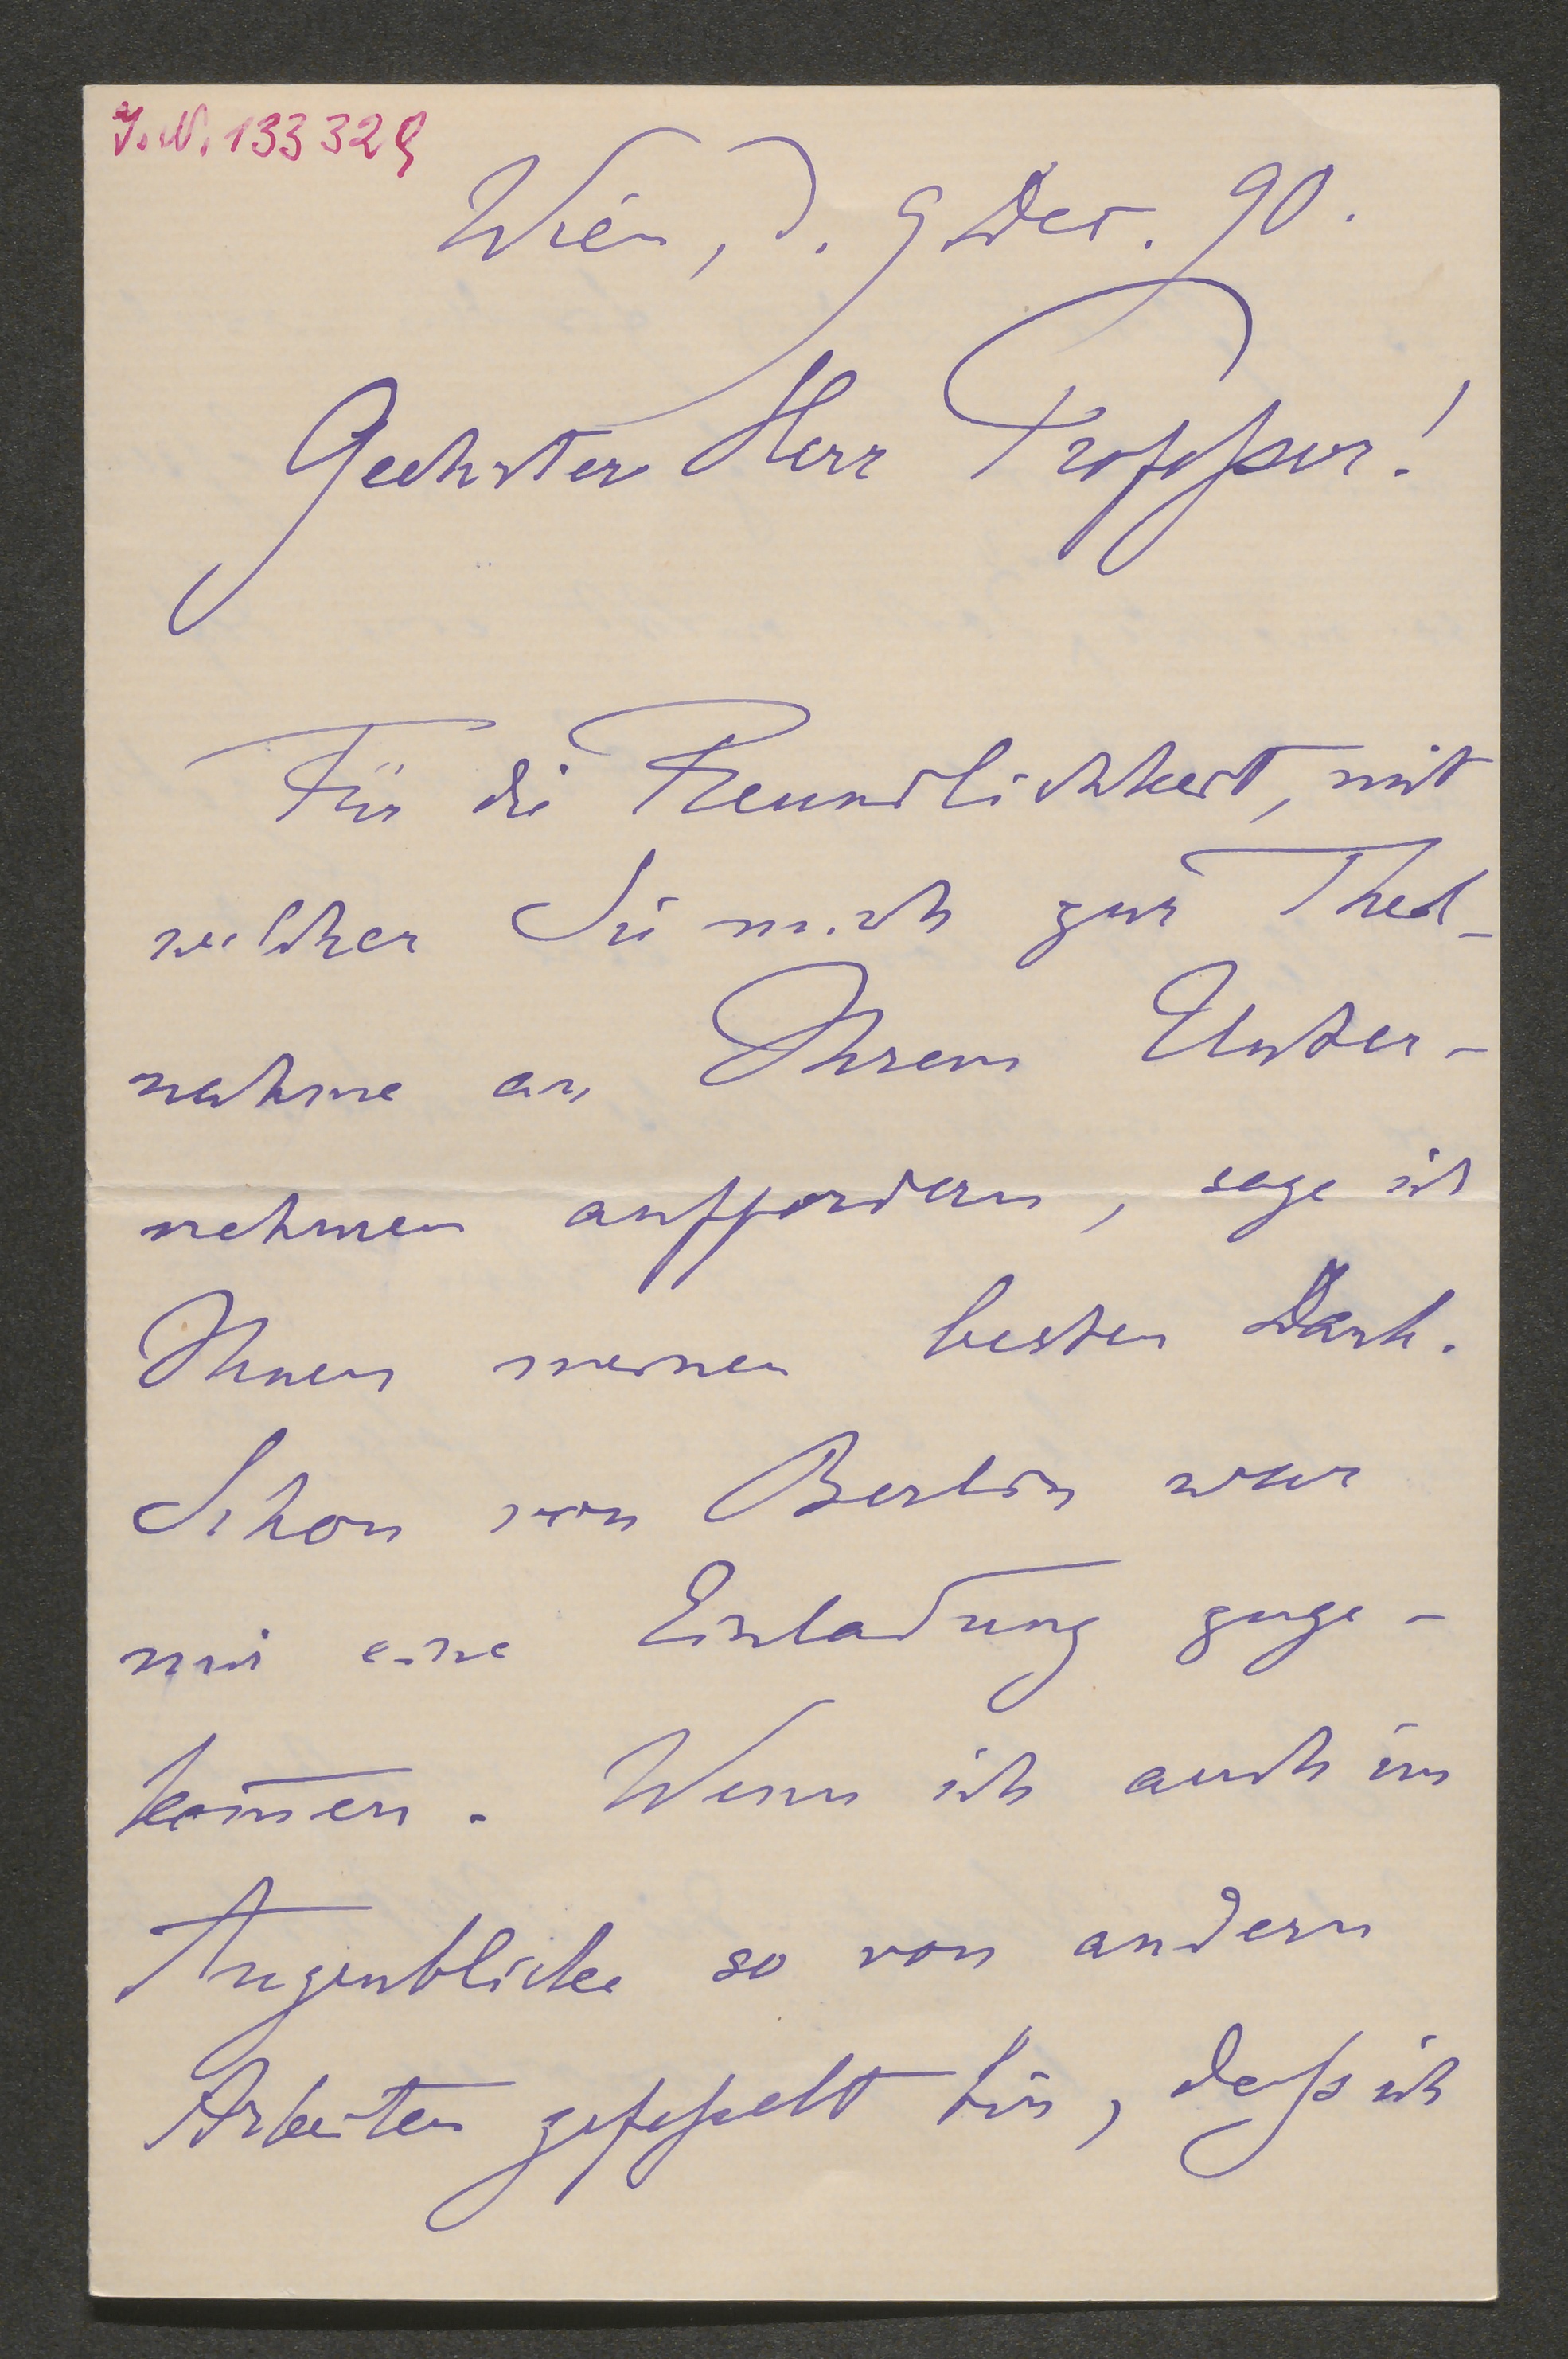 J. N. 133329
Wien, d. 9 Dec. 90.
Geehrter Herr Professor!
Für die Freundlichkeit, mit
welcher Sie mich zur Theil-
nahme an Ihrem Unter-
nehmen auffordern, sage ich
Ihnen meinen besten Dank.
Schon von Berlin war
mir eine Einladung zuge-
kom̄en. Wenn ich auch im
Augenblicke so von andern
Arbeiten gefesselt bin, daß ich